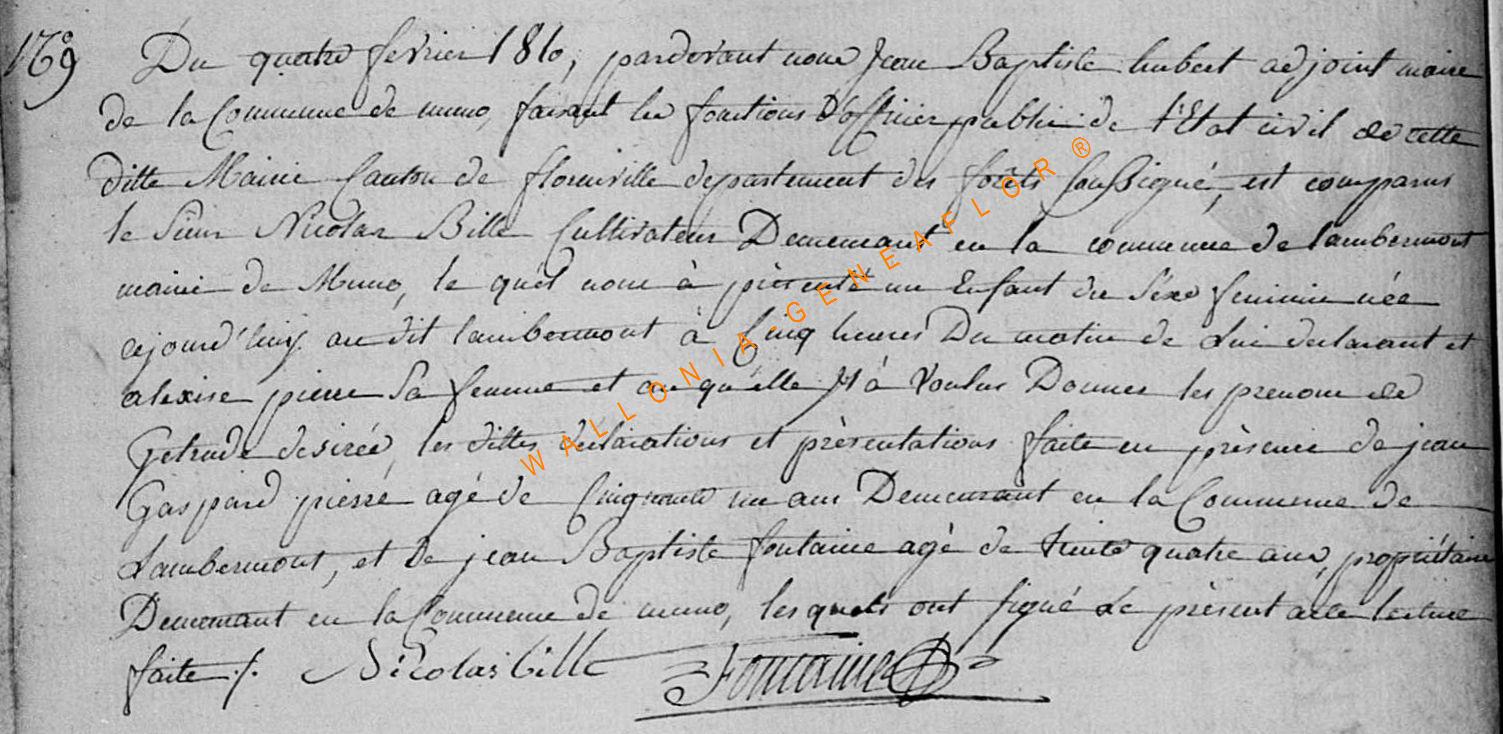 Du quatre fevrier 1810, pardevant nous Jean Baptiste hubert adjoint maire
de la Commune de muno, faisant les fonctions D'officier public de l'Etat civil de cette
ditte Mairie Canton de florenville departement des forêts soussigné, est comparus
le Sieur Nicolas Bille Cultivateur Demeurant en la commune de lambermont
mairie de Muno, le quel nous à présenté un Enfant du séxe feminin née
cejourd'huy au dit lambermont à Cinq heures Du matin de Lui declarant et
alexise pierre Sa femme et au qu'elle Il à Voulus Donner les prenom de
Getrude desirée, les dittes declarations et présentations faite en présence de jean
Gaspard pierre agé de Cinquante un ans Demeurant en la Commune de
Lambermont, et De jean Baptiste fontaine agé de trente quatre ans, propriétaire
Demeurant en la Commune de muno, lesquels ont signé Le présent acte lecture
faite ./. Nicolas bille Fontaine
WALLONIA-GENEAFLOR ®